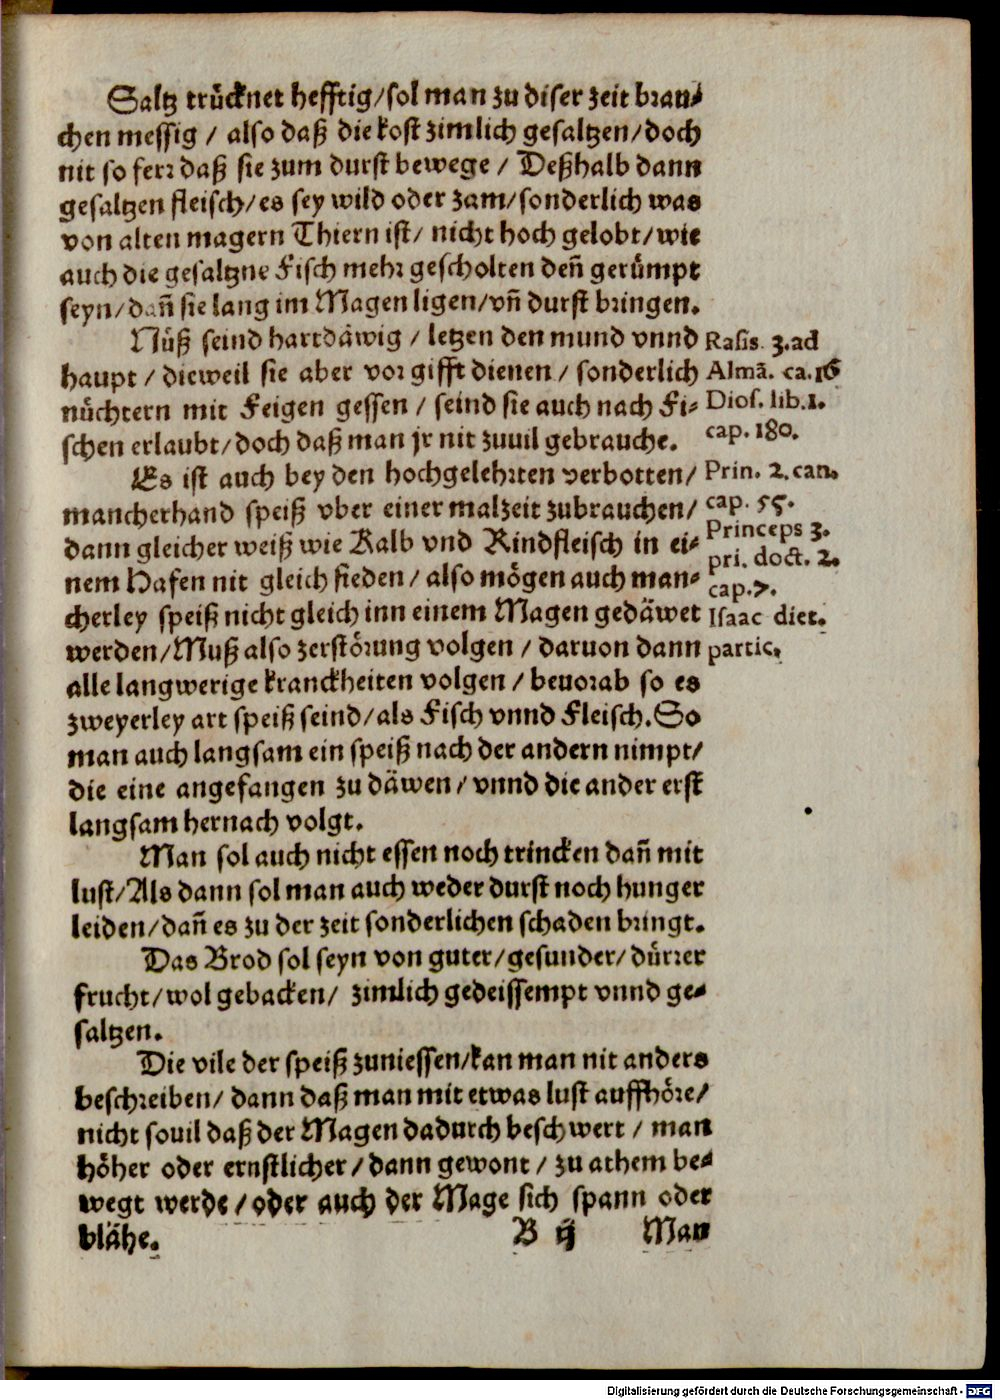 Saltz trücknet hefftig/sol man zu diser zeit brau-
chen messig / also daß die kost zimlich gesaltzen/doch
nit so ferr daß sie zum durst bewege / Deßhalb dann
gesaltzen fleisch/es sey wild oder zam/sonderlich was
von alten magern Thiern ist/ nicht hoch gelobt/wie
auch die gesaltzne Fisch mehr gescholten deñ gerümpt
seyn/dañ sie lang im Magen ligen/vñ durst bringen.
Nüß seind hartdäwig / letzen den mund vnnd
haupt / dieweil sie aber vor gifft dienen / sonderlich
nüchtern mit Feigen gessen / seind sie auch nach Fi-
schen erlaubt/doch daß man jr nit zuuil gebrauche.
Rasis 3.ad
Almā. ca.16
Dios. lib.1.
cap.180.
Es ist auch bey den hochgelehrten verbotten/
mancherhand speiß vber einer malzeit zubrauchen/
dann gleicher weiß wie Kalb vnd Rindfleisch in ei-
nem Hafen nit gleich sieden / also mögen auch man-
cherley speiß nicht gleich inn einem Magen gedäwet
werden/Muß also zerstörung volgen / daruon dann
alle langwerige kranckheiten volgen / beuorab so es
zweyerley art speiß seind/als Fisch vnnd Fleisch.So
man auch langsam ein speiß nach der andern nimpt/
die eine angefangen zu däwen / vnnd die ander erst
langsam hernach volgt.
Prin. 2.can.
cap. 55.
Princeps 3.
pri. doct. 2.
cap.7.
Isaac diet.
partic.
Man sol auch nicht essen noch trincken dañ mit
lust/Als dann sol man auch weder durst noch hunger
leiden/dañ es zu der zeit sonderlichen schaden bringt.
Das Brod sol seyn von guter/gesunder/dürrer
frucht/wol gebacken/ zimlich gedeissempt vnnd ge-
saltzen.
Die vile der speiß zuniessen/kan man nit anders
beschreiben/ dann daß man mit etwas lust auffhöre/
nicht souil daß der Magen dadurch beschwert / man
höher oder ernstlicher / dann gewont / zu athem be-
wegt werde / oder auch der Mage sich spann oder
blähe.
B ij
Man
Digitalisierung gefördert durch die Deutsche Forschungsgemeinschaft - DFG